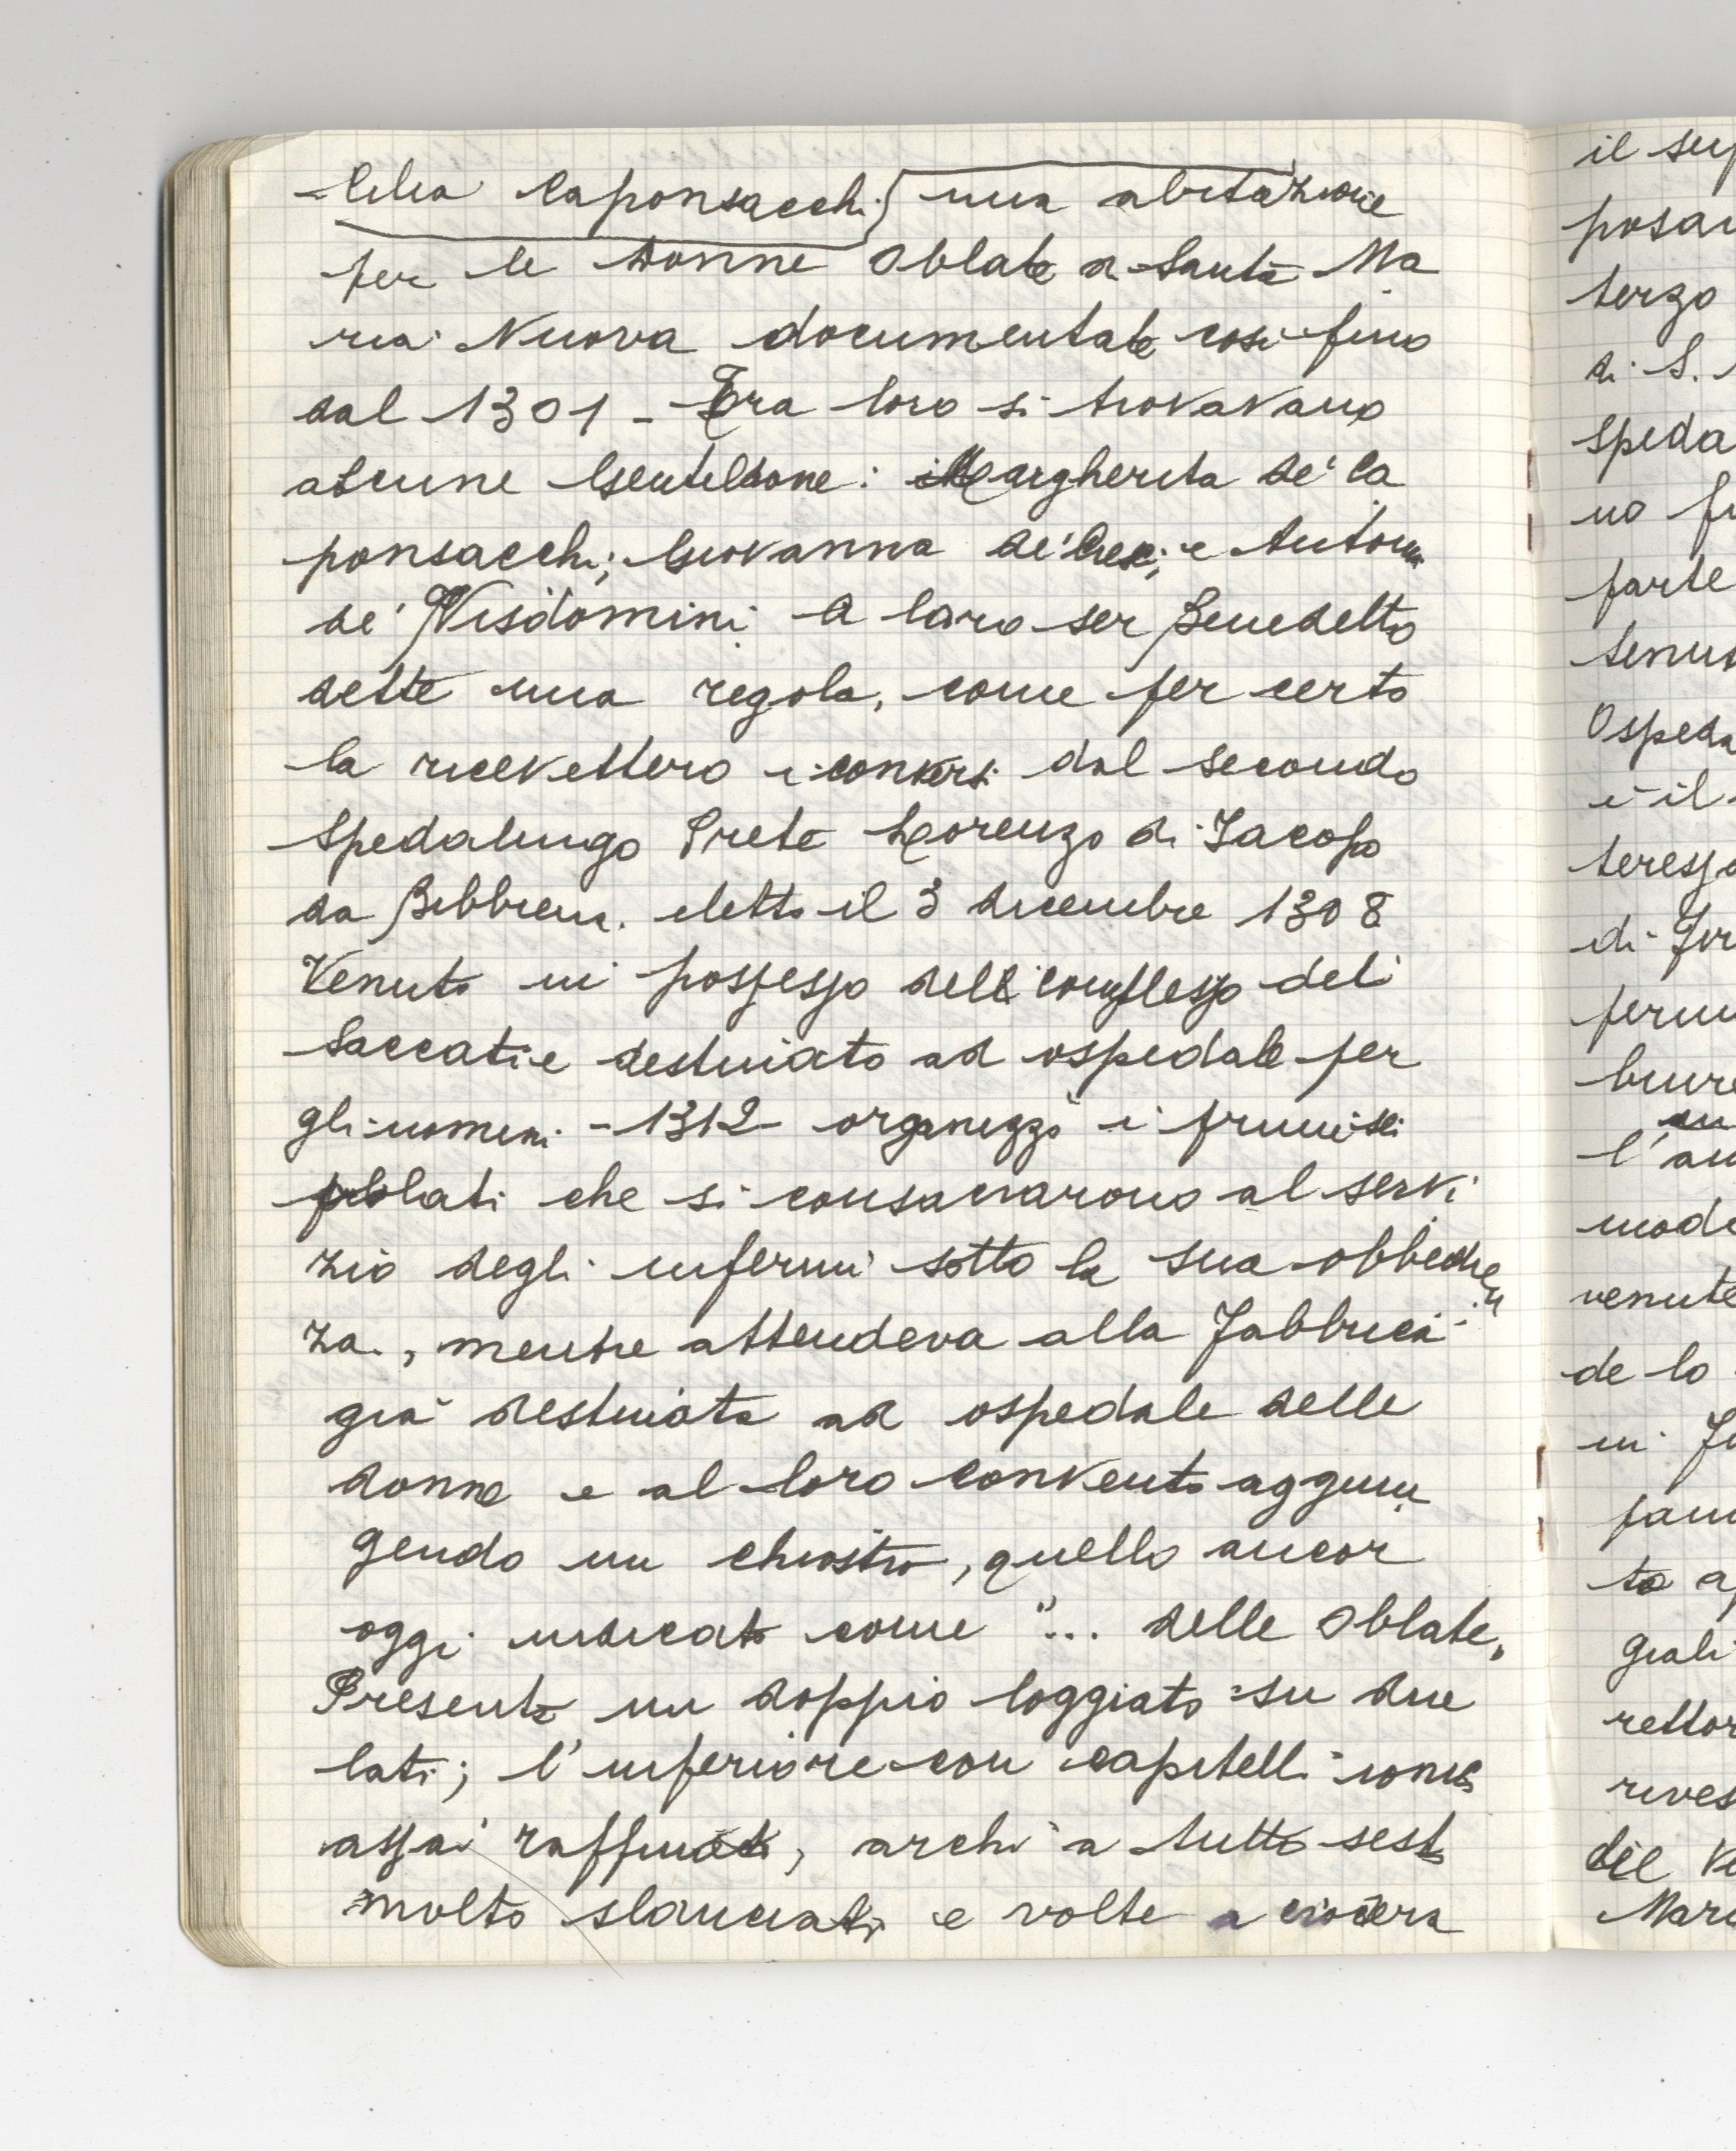 Cilia Caponsacchi; una abitazione
per le Donne Oblate a Santa Ma
ria Nuova documentate così fino
dal 1301 - Tra loro si trovavano
alcune Gentildone: Margherita de' Ca
ponsacchi; Giovanna de' e Antonia
de' Visdomini. A loro ser Benedetto
dette una regola, come per certo
la ricevettero i conversi dal secondo
Spedalingo Prete Lorenzo di Jacopo
da Bibbiena. eletto il 3 dicembre 1308
Venuto in possesso dell complesso deli
Saccati e destinato ad ospedale per
gli uomini - 1312 - organizzò i primi
oblati che si consacrarono al servi
zio degli infermi sotto la sua obbedien
za., mentre attendeva alla Fabbrica
già destinata ad ospedale delle
donne e al loro convento aggiun
gendo un chiostro, quello ancor
oggi indicato come "... delle Oblate"
Presenta un doppio loggiato su due
lati; l'inferiore con capitelli ionici
assai raffinati, archi a tutto sesto
molto slanciati e volte a crociera
il sup
posa
terzo
di S.
speda
no fu
parte
tenu
Ospeda
e il
teresso
di
ferm
l'an
mode
venute
de lo
in
fam
to a
giali
rettor
rives
del
Mari